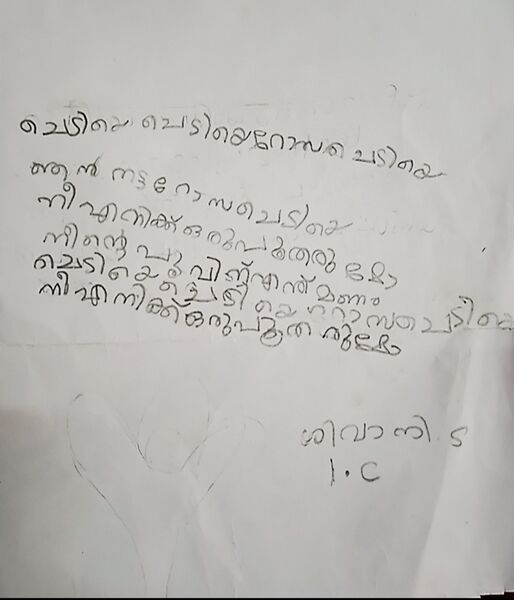 ചെടിയെ ചെടിയെറോസചെടിയെ
ഞാൻ നട്ട റോസചെടിയെ
നീഎനിക്ക്ഒരുപൂതരുമോ
നിന്റെ പൂവിന്എന്ത്മണം
ചെടിയെചെടിയെറോസചെടിയെ
നീഎനിക്ക്ഒരുപൂതരുമോ
ശിവാനി. S
1. C